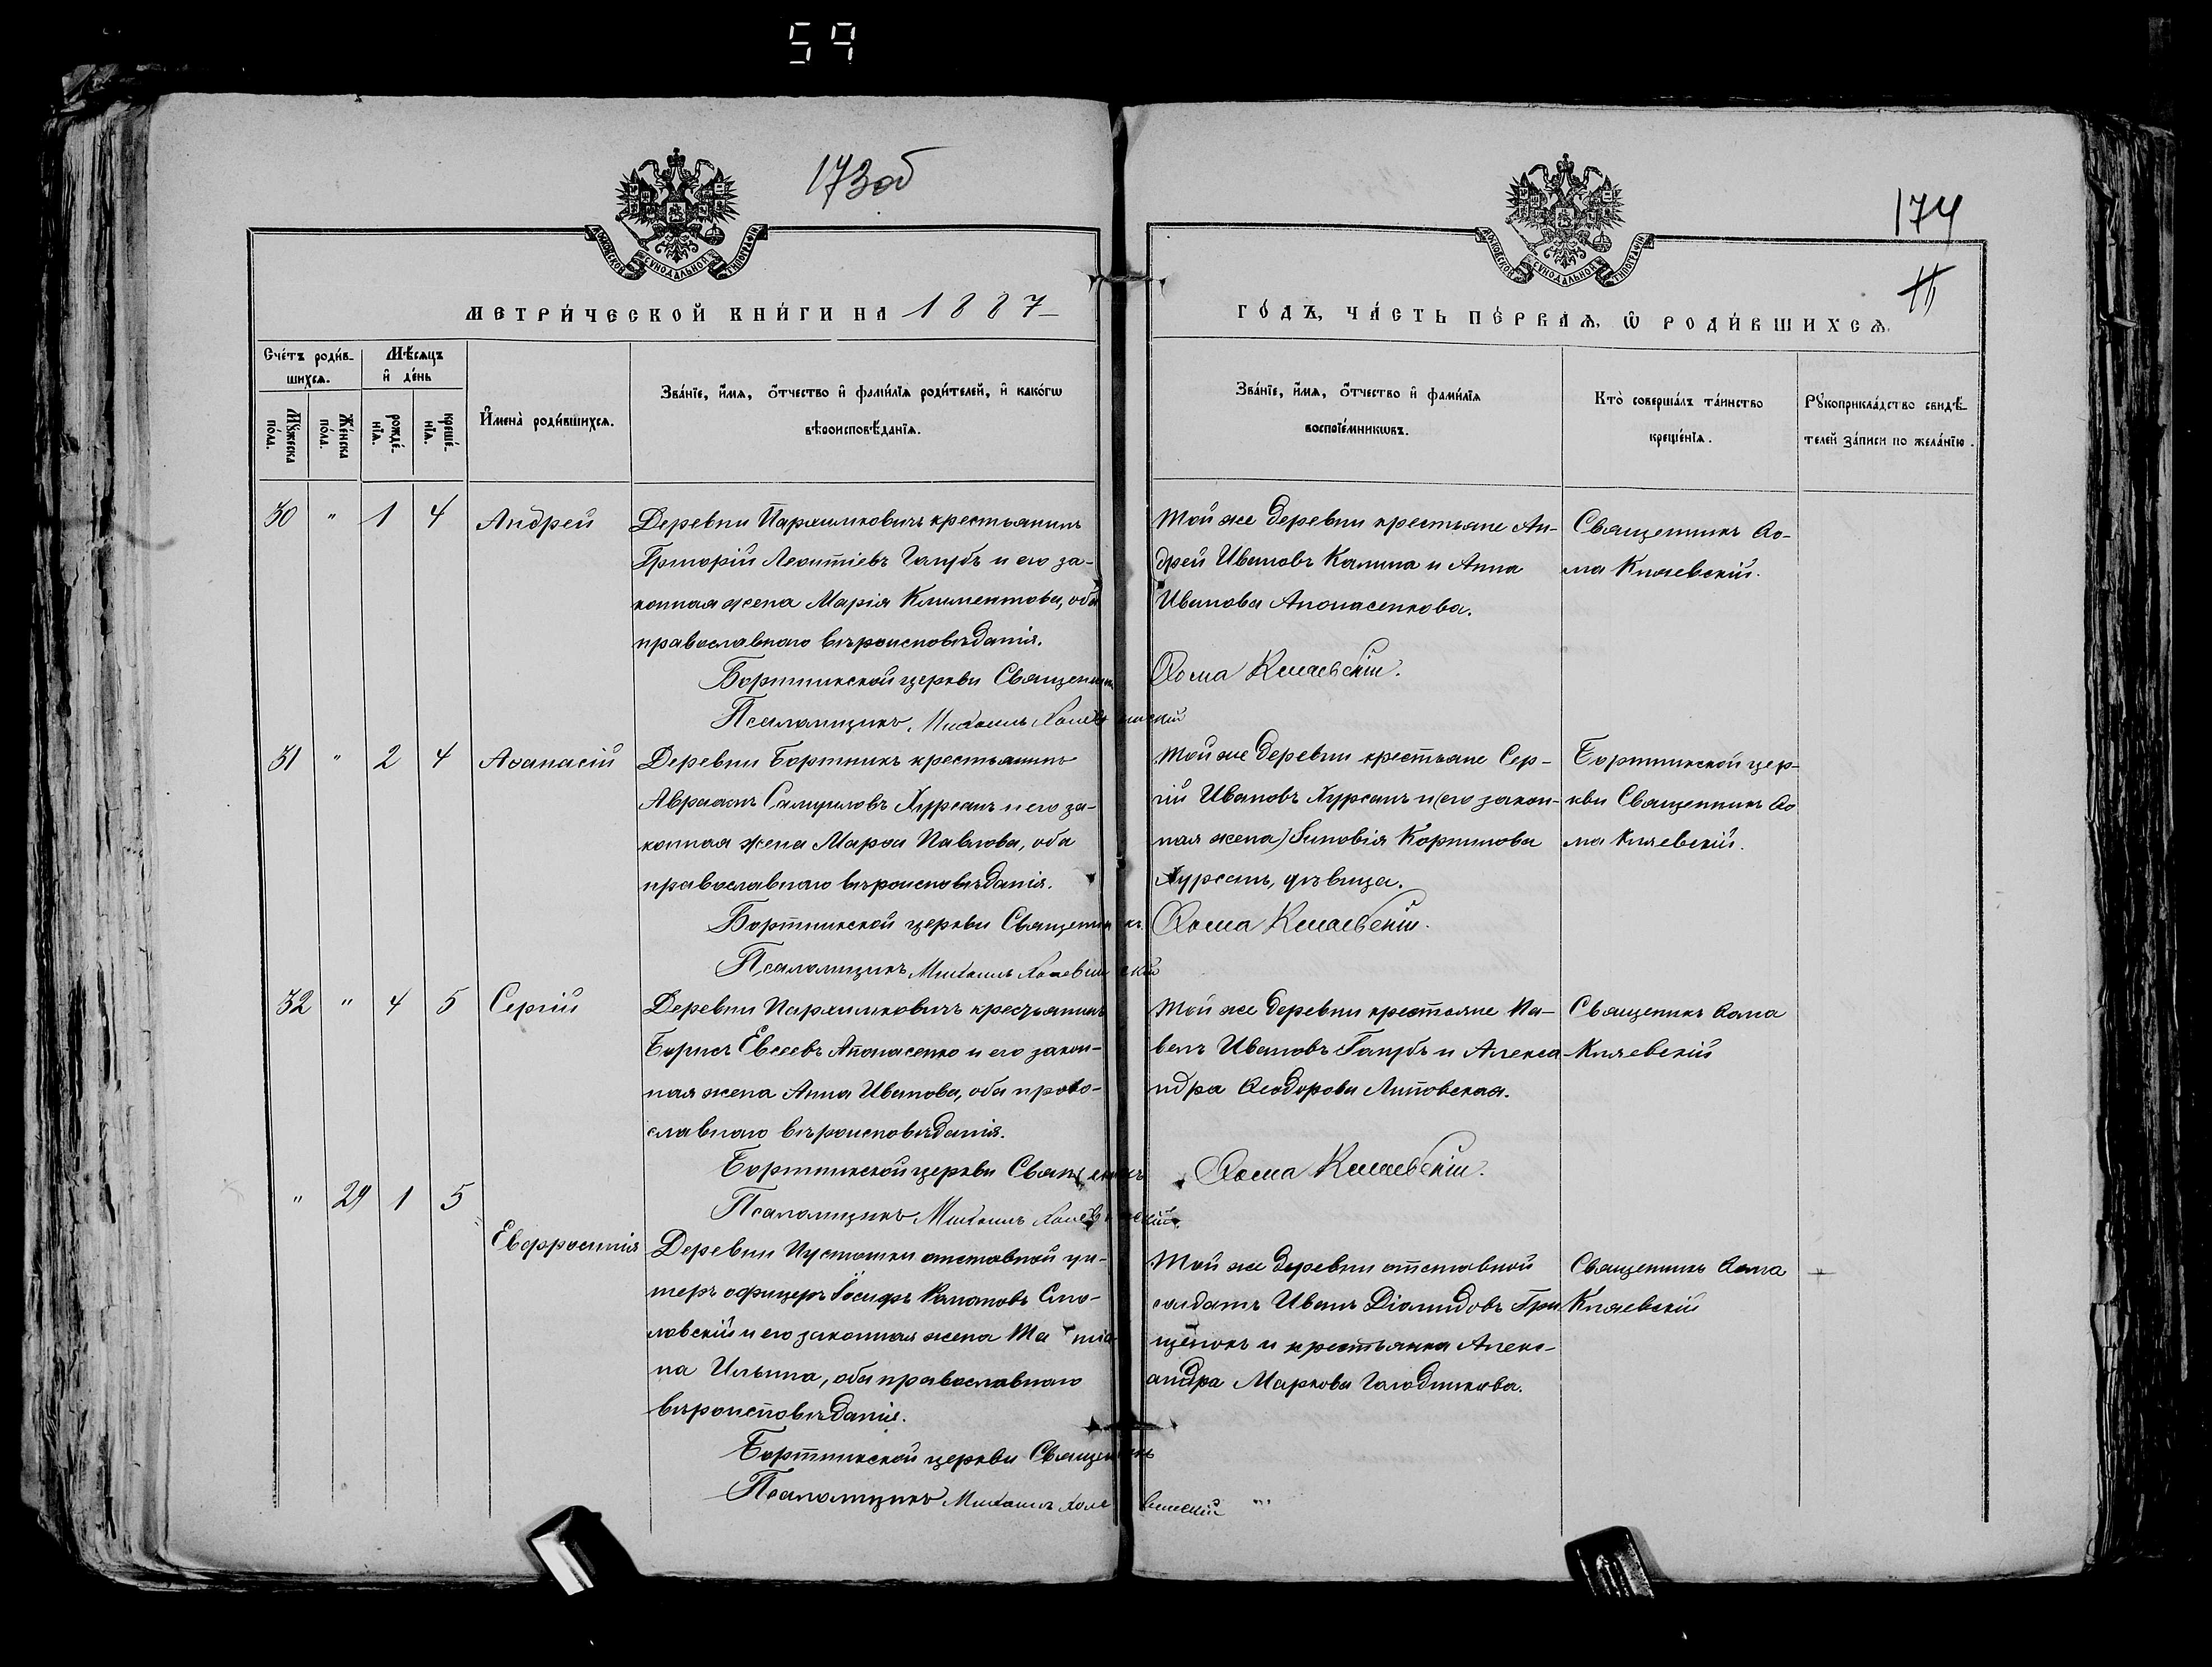 59
173об
174
МОСКОВСКОЙ СУНОДАЛЬНОЙ ТИПОГРАФІИ
МОСКОВСКОЙ СУНОДАЛЬНОЙ ТИПОГРАФІИ
МЕТРИ́ЧЕСКОЙ КНИ́ГИ НА 1887
ГО́ДЪ, ЧА́СТЬ ПЕ́РВАѦ, Ѿ РОДИ́ВШИХСѦ.
Сче́тъ роди́в-
шихсѧ.
Мѣ́сѧцъ
и҆ де́нь
Мꙋ́жеска по́ла.
Же́нска по́ла.
рожде́-
нїѧ.
креще́-
нїѧ.
И҆мена̀ роди́вшихсѧ.
Зва́нїе, и҆́мѧ, ѻ҆́тчество и҆ фами́лїѧ роди́телей, и҆ како́гѡ
вѣроисповѣ́данїѧ.
Зва́нїе, и҆́мѧ, ѻ҆́тчество и҆ фами́лїѧ
воспрїе́мникѡвъ.
Кто̀ соверша́лъ та́инство
креще́нїѧ.
Рꙋкоприкла́дство свидѣ́-
телей за́писи по жела́нїю.
30 " 1 4 Андрей
Деревни Пархимковичъ крестьянинъ
Григорій Леонтіевъ Гапубъ и его за-
конная жена Марія Климентова, оба
православнаго вѣроисповѣданія.
Бортникской церкви Священникъ
Псаломщикъ Михаилъ
Той же деревни крестьяне Ан-
дрей Ивановъ Калина и Анна
Иванова Апонасенкова.
Ѳома Княевскій.
Священникъ Ѳо-
ма Княевскій.
31 " 2 4 Аѳанасій
Деревни Бортникъ крестьянинъ
Авраамъ Самуиловъ Хурсанъ и его за-
конная жена Марѳа Павлова, оба
православнаго вѣроисповѣданія.
Бортникской церкви Священникъ
Псаломщикъ Михаилъ
Той же деревни крестьяне Сер-
гій Ивановъ Хурсанъ и (его закон-
ная жена) Зиновія Корнилова
Хурсанъ, дѣвица.
Ѳома Княевскій.
Бортникской цер-
кви Священникъ Ѳо
ма Княевскій.
32 " 4 5 Сергій
Деревни Пархимковичъ крестьянинъ
Борисъ Евсеевъ Апонасенко и его закон-
ная жена Анна Иванова, оба право-
славнаго вѣроисповѣданія.
Бортникской церкви Священникъ
Псаломщикъ Михаилъ
Той же деревни крестьяне Па-
велъ Ивановъ Гапубъ и Алекса-
ндра Ѳеодорова Литовская.
Ѳома Княевскій.
Священникъ Ѳома
Княевскій
" 29 1 5
Евфросинія
Деревни Пустошки отставной ун-
теръ офицеръ Іосифъ Романовъ
и его законная жена Татіа-
на Ильина, оба православнаго
вѣроисповѣданія.
Бортникской церкви Священникъ
Псаломщикъ Михаилъ
Той же деревни отставной
солдатъ Иванъ Діомидовъ Гри
щенокъ и крестьянка Алекс-
андра Маркова Голодникова.
Священникъ Ѳома
Княевскій